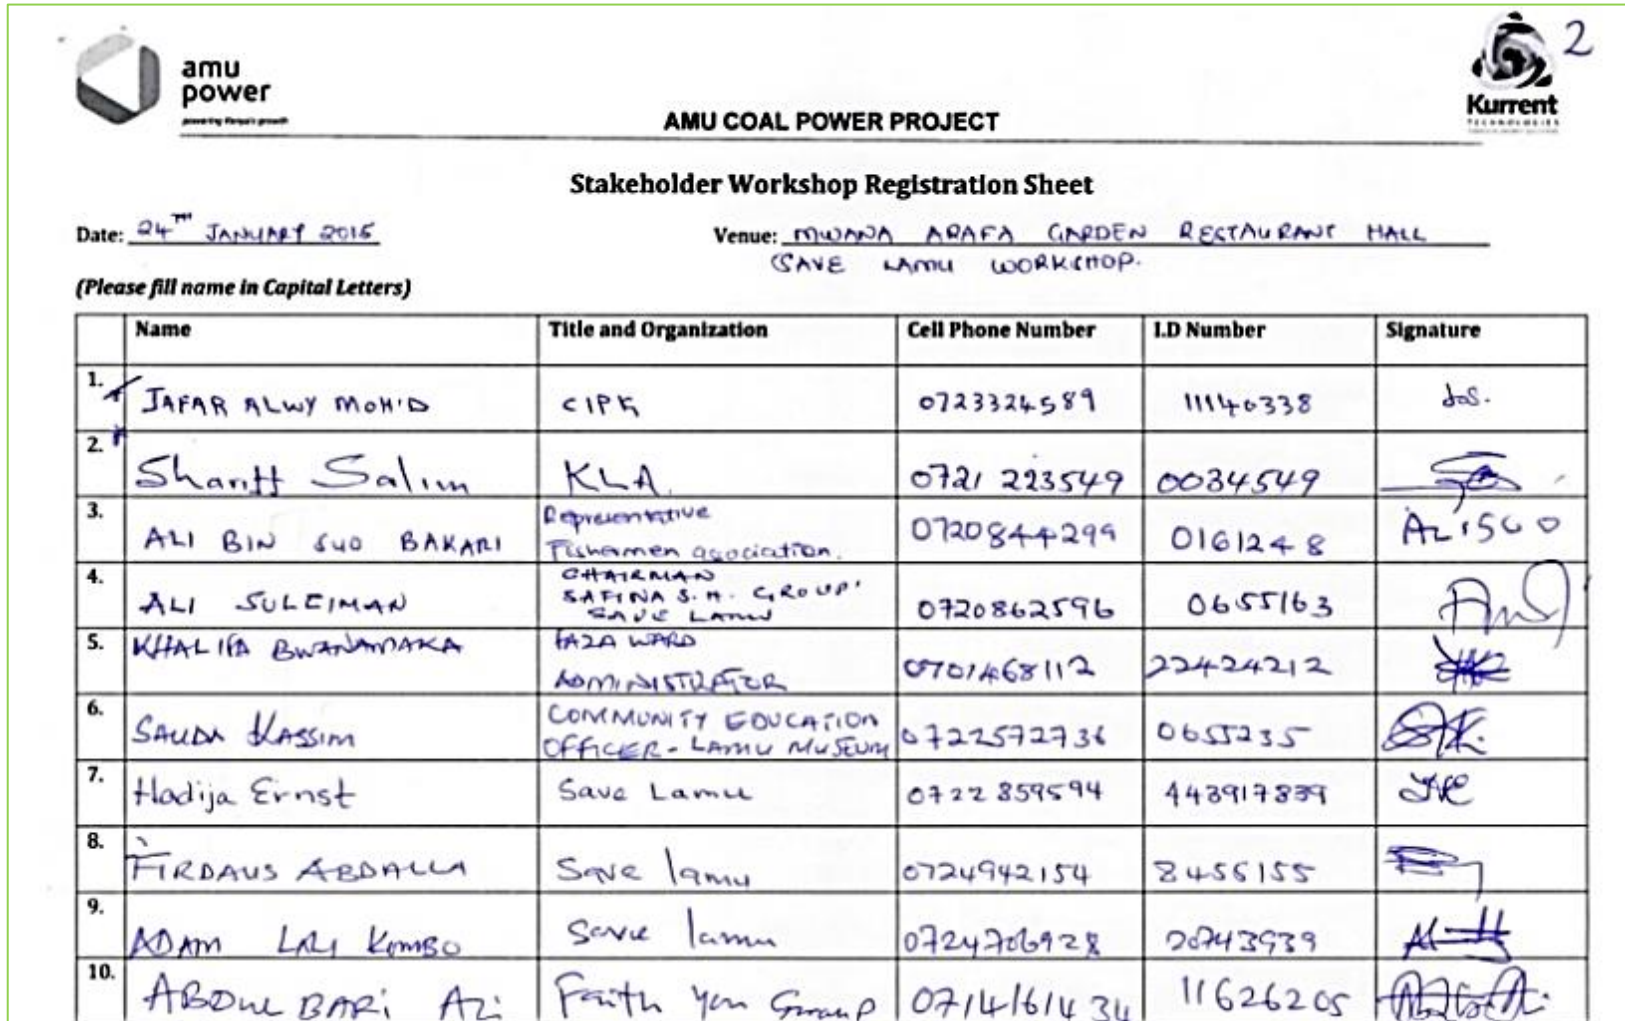 2
amu
power
powering Kenya's growth
Kurrent
TECHNOLOGIES
AMU COAL POWER PROJECT
Stakeholder Workshop Registration Sheet
Date: 24TH JANUARY 2015
Venue: MWANA ARAFA GARDEN RESTAURANT HALL
(SAVE LAMU WORKSHOP.
(Please fill name in Capital Letters)
Name Title and Organization Cell Phone Number I.D Number Signature
1. JAFAR ALWY MOH'D CIPK 0723324589 11140338
2. Shariff Salim KLA. 0721 223549 0034549
3. ALI BIN SUO BAKARI Representative 0720844299 0161248 ALI SUO
Fishermen asociation.
4. ALI SULEIMAN CHAIRMAN 0720862596 0655163
SAFINA S.H. GROUP'
SAVE LAMU
5. KHALIFA BWANAMAKA FAZA WARD 0701468112 22424212
ADMINISTRATOR
6. SAUDA KASSIM COMMUNITY EDUCATION 0722572736 0655235
OFFICER - LAMU MUSEUM
7. Hadija Ernst Save Lamu 0722 859594 443917839
8. FIRDAUS ABDALLA Save lamu 0724942154 8456155
9. ADAM LALI KOMBO Save lamu 0724706928 20743939
10. ABDUL BARI ALI Faith Group 0714161434 11626205